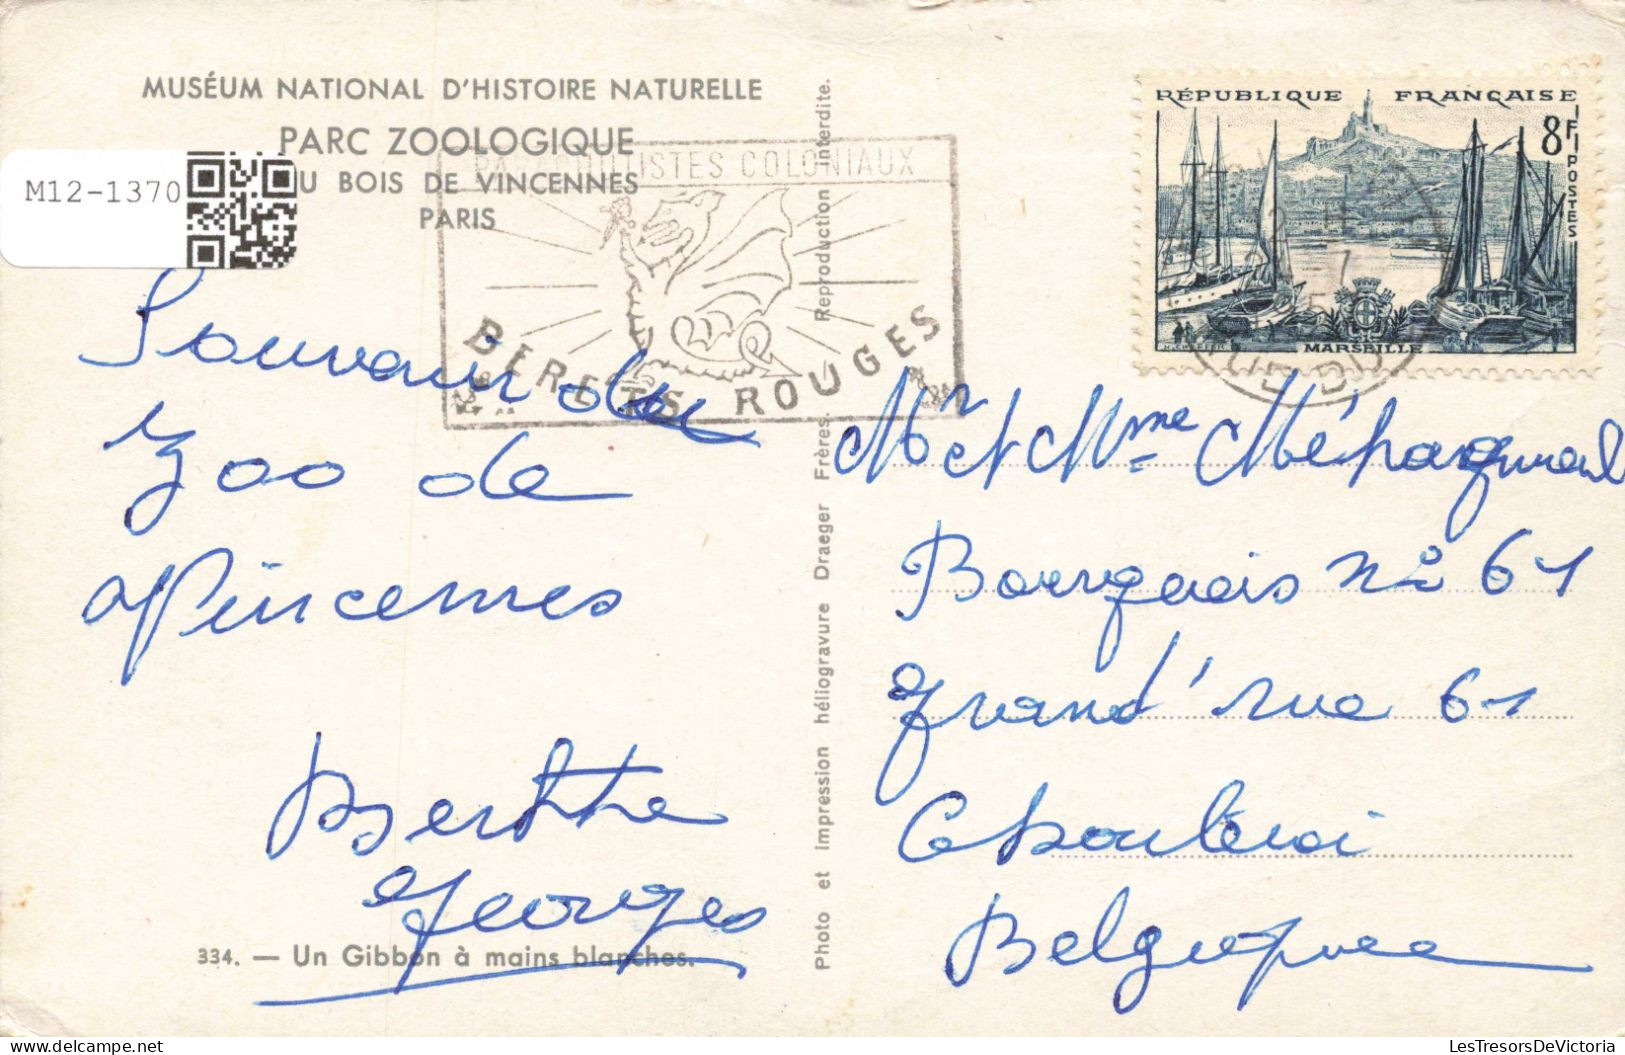 MUSÉUM NATIONAL D'HISTOIRE NATURELLE
PARC ZOOLOGIQUE
U BOIS DE VINCENNES
PARIS
M12-1370
COLONIAUX
BERETS ROUGES
RÉPUBLIQUE FRANÇAISE
8F
POSTES
MARSEILLE
Souvenir du
Zoo de
Vincennes
Berthe
Georges
334. — Un Gibbon à mains blanches.
Photo et impression héliogravure Draeger Frères. Reproduction interdite.
Mr et Mme
Bourgeois no 61
Grand' rue 61
Charleroi
Belgique
LesTresorsDeVictoria
Delcampe.net